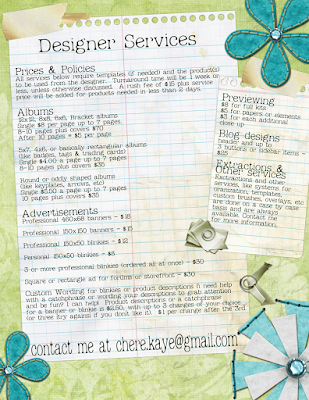 Designer Services
Prices & Policies
All services below require templates (if needed) and the product(s)
to be used from the designer. Turnaround time will be 1 week or
less, unless otherwise discussed. A rush fee of $15 plus service
price will be added for products needed in less than 2 days.
Albums
Single $8 per page up to 7 pages
8-10 pages plus covers $70
After 10 pages - $5 per page
5x7, 4x6, or basically rectangular albums
(like badges, tags & trading cards)
Single $4.00 a page up to 7 pages
8-10 pages plus covers $35
Round or oddly shaped albums
(like keyplates, arrows, etc)
Single $5.00 a page up to 7 pages
10 pages plus covers $35
Advertisements
Professional 468x68 banners - $18
Professional 150x150 banners - $15
Professional 150x50 blinkies - $12
Personal 150x50 blinkies - $8
3 or more professional blinkies (ordered all at once) - $30
Square or rectangle ad for forums or storefront - $30
Custom Wording for blinkies or product descriptions. I need help
with a catchphrase or wording your descriptions to grab attention
and be fun? I can help! Product descriptions or a catchphrase
for a banner or blinkie is $2.50, with up to 3 changes of your choice
(or three try agains if you don't like it). $1 per change after the 3rd.
Previewing
$8 for full kits
$5 for papers or elements
$3 for each additional
close up
Blog designs
header and up to
3 buttons or sidebar items
Extractions &
Other services
Extractions and other
services, like systems for
organization, templates,
custom brushes, overlays, etc
are done on a case by case
basis and are always
available. Contact me
for more information.
contact me at chere.kaye@gmail.com